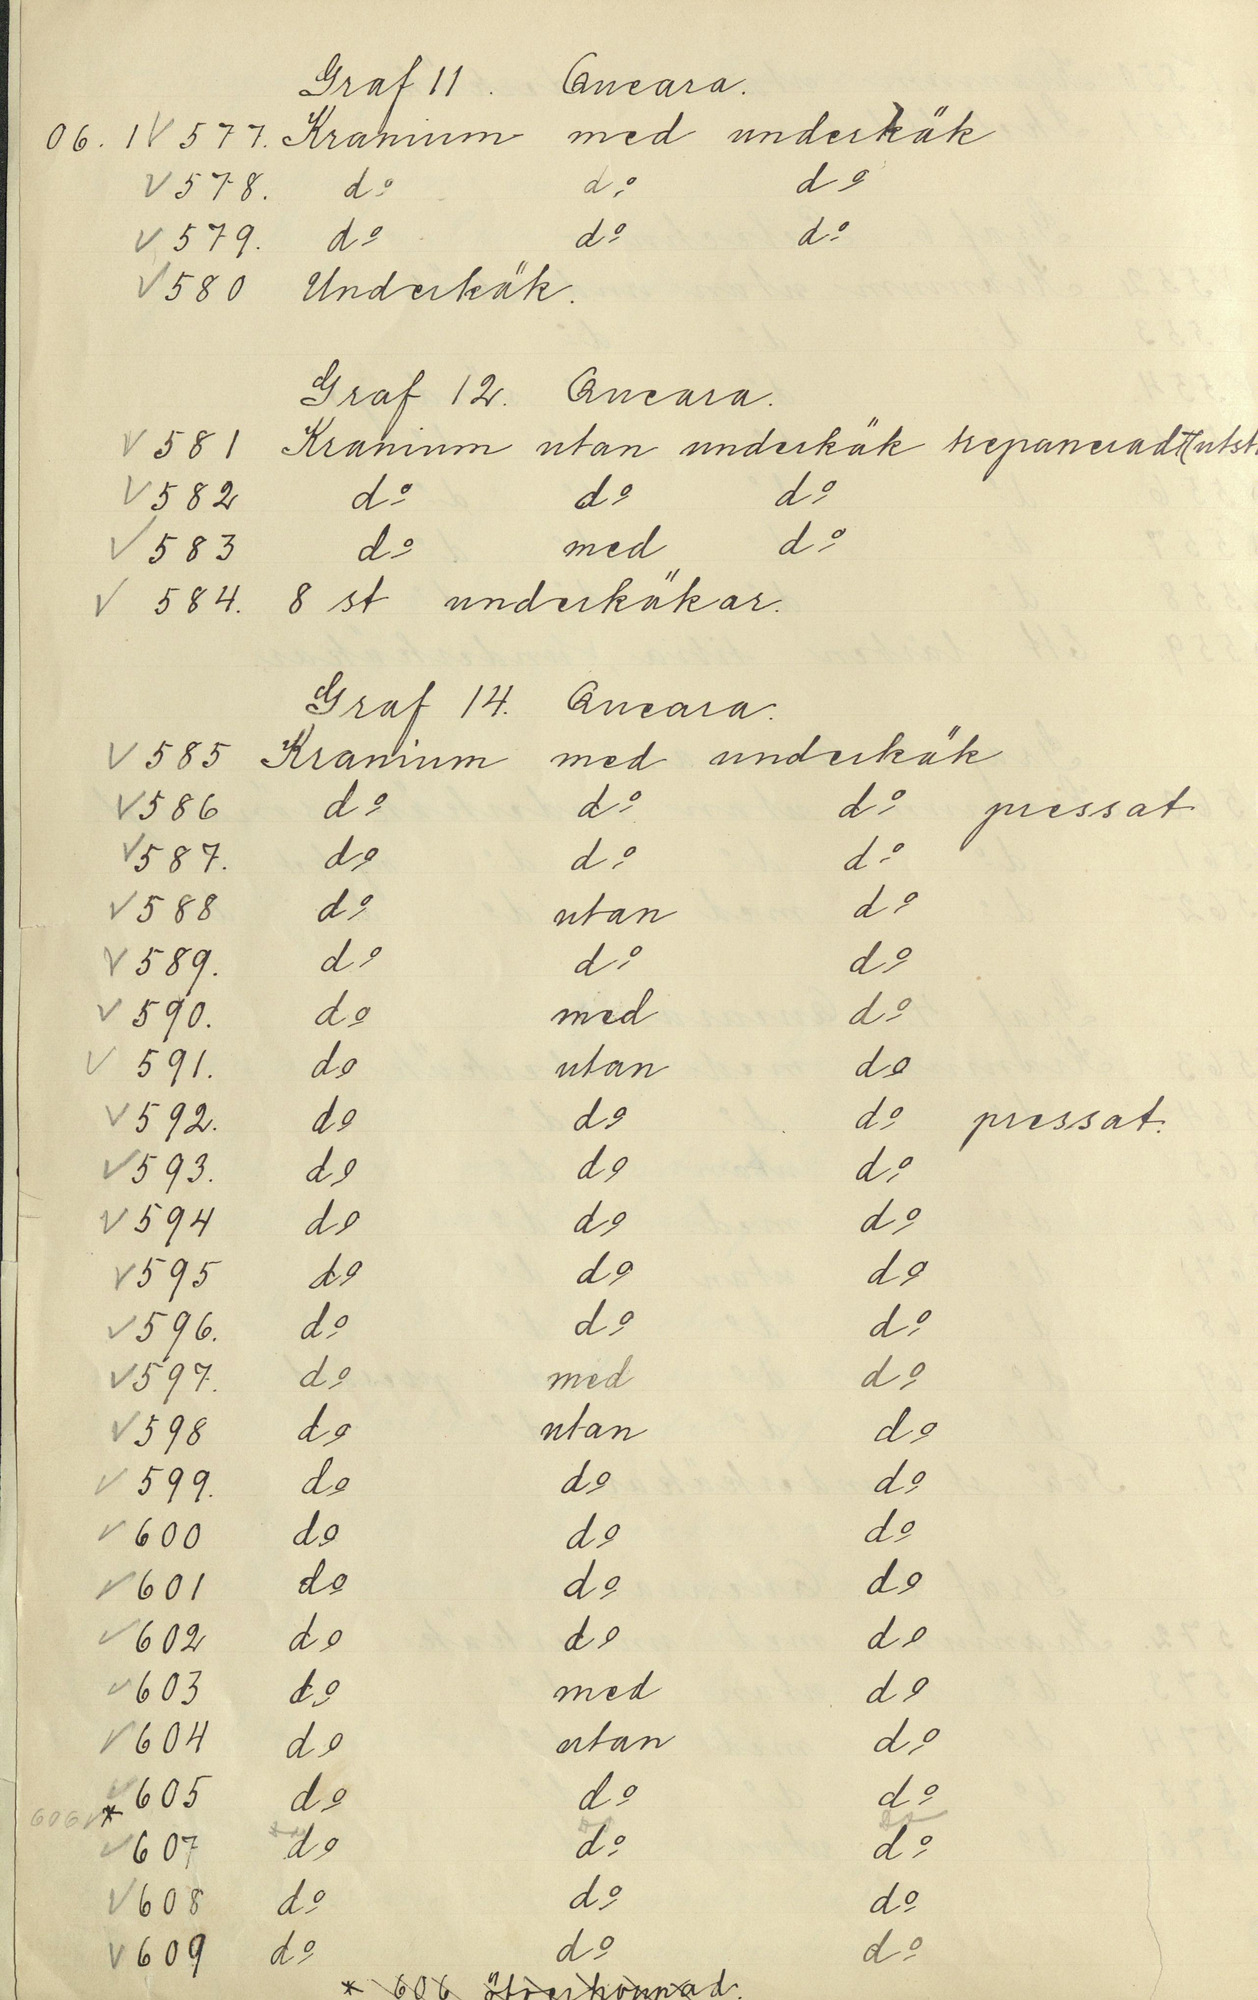 Graf 11. Queara.
06. 1 V 577. Kranium med underkäk
V 578. do do do
V 579. do do do
V 580 Underkäk.
Graf 12. Queara.
V 581 Kranium utan underkäk trepaneradt (utst
V 582 do do do
V 583 do med do
V 584. 8 st underkäkar.
Graf 14. Queara.
V 585 Kranium med underkäk
V 586 do do do pressat
V 587. do do do
V 588 do utan do
V 589. do do do
V 590. do med do
V 591. do utan do
V 592. do do do pressat.
V 593. do do do
V 594 do do do
V 595 do do do
V 596. do do do
V 597. do med do
V 598 do utan do
V 599. do do do
V 600 do do do
V 601 do do do
V 602 do do do
V 603 do med do
V 604 do utan do
V 605 do do do
606 V * do do do
V 607 do do do
V 608 do do do
V 609 do do do
* 606